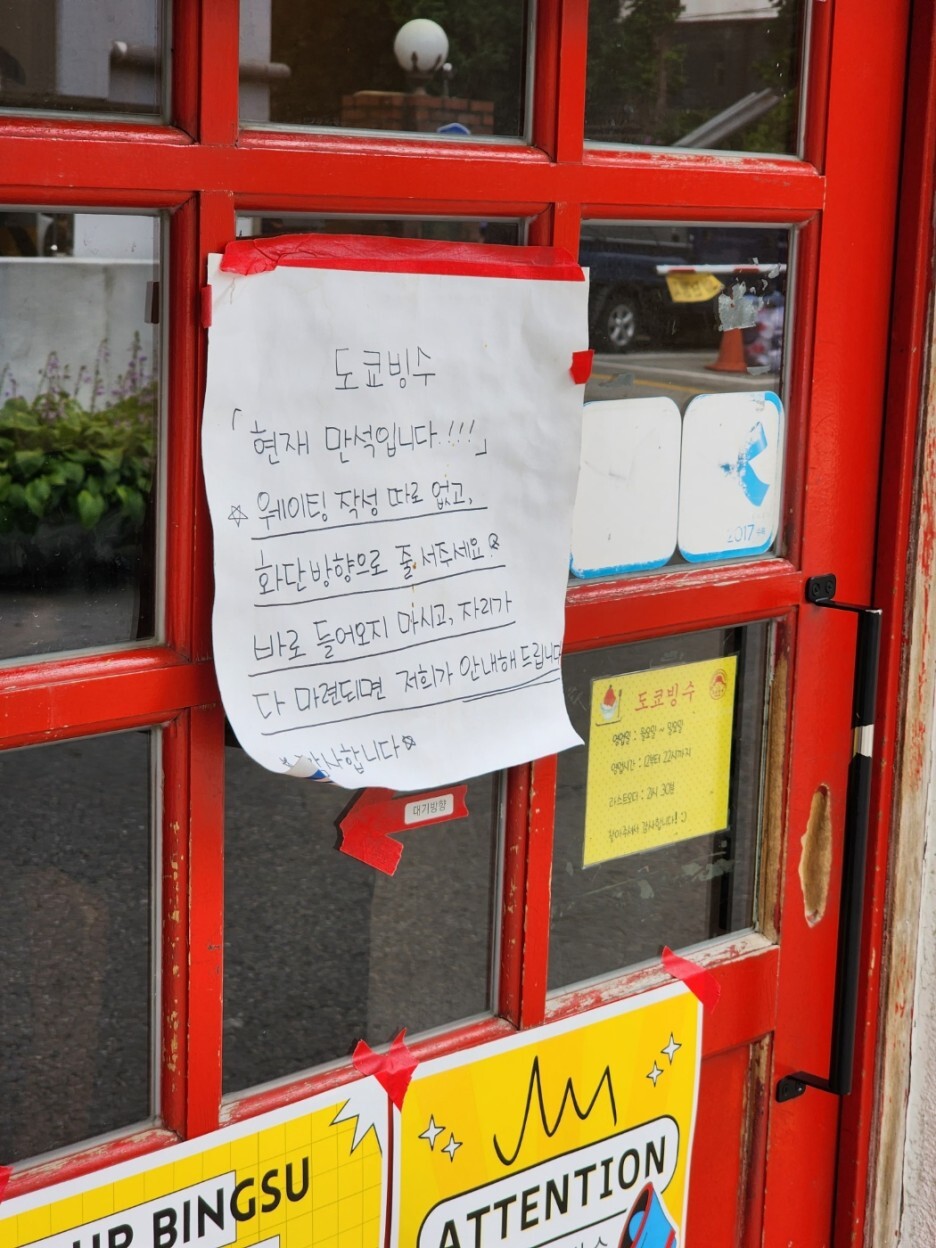 도쿄빙수
「현재 만석입니다.!!!」
☆ 웨이팅 작성 따로 없고,
화단방향으로 줄 서주세요
바로 들어오지 마시고, 자리가
다 마련되면 저희가 안내해 드립니다
감사합니다
대기방향
2017
도쿄빙수
영업일 : 월요일 ~ 일요일
영업시간 : 12부터 22시까지
라스트오더 : 21시 30분
감사합니다!
BINGSU
ATTENTION